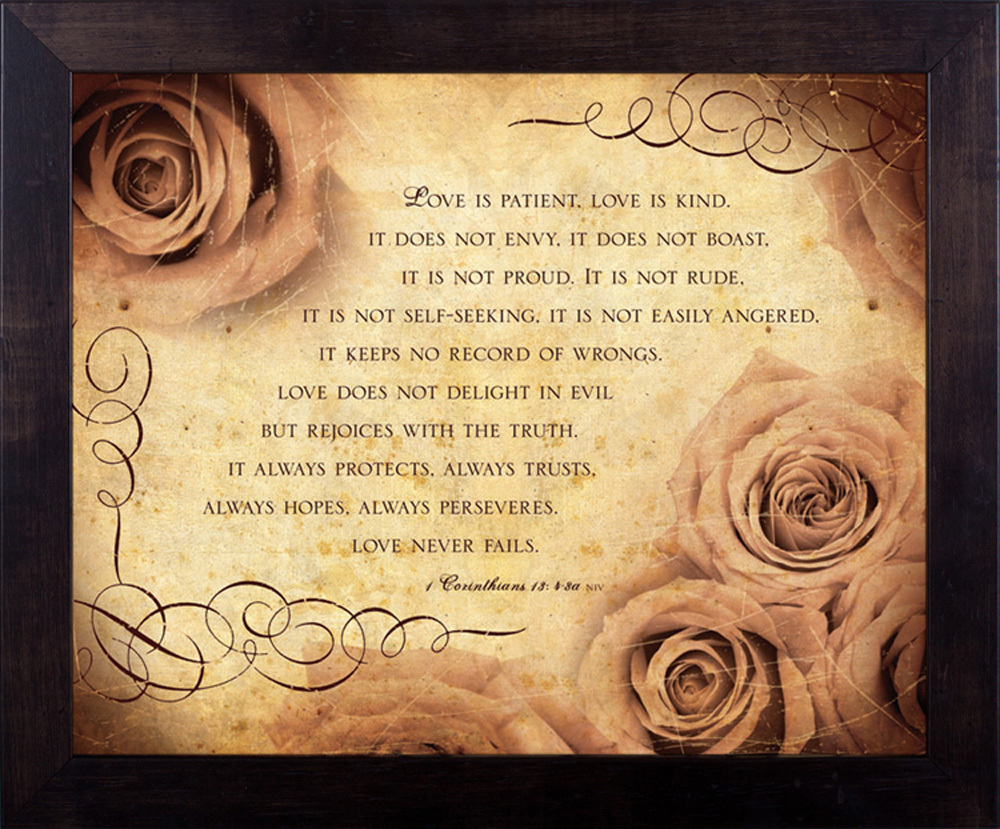 Love is patient, love is kind.
It does not envy, it does not boast,
it is not proud. It is not rude,
it is not self-seeking, it is not easily angered,
it keeps no record of wrongs.
Love does not delight in evil
but rejoices with the truth.
It always protects, always trusts,
always hopes, always perseveres.
Love never fails.
1 Corinthians 13: 4-8a NIV